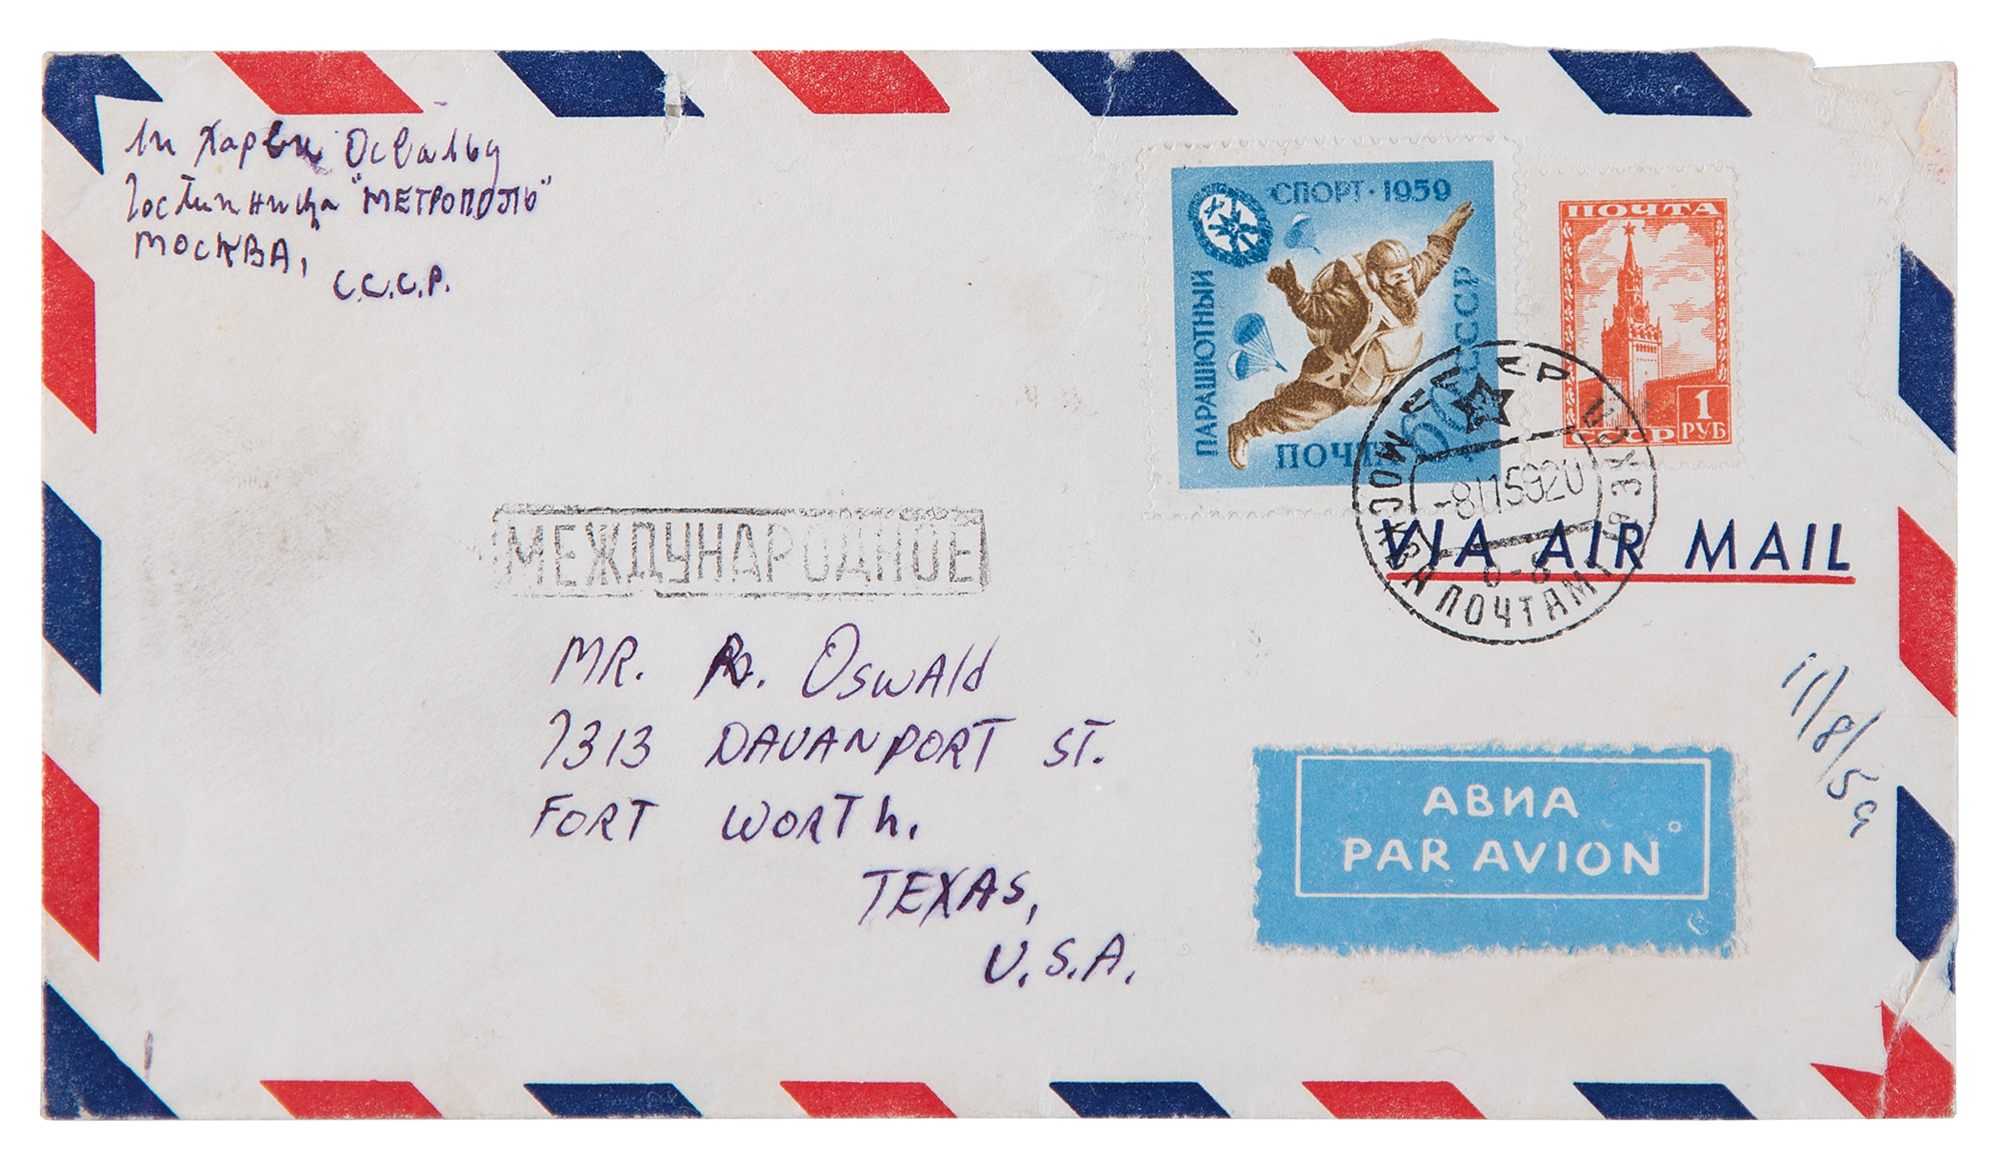 Ли Харви Освальд
Гостинница "МЕТРОПОЛЬ"
МОСКВА,
С.С.С.Р.
СПОРТ·1959
ПАРАШЮТНЫЙ
СССР
60
ПОЧТА
ПОЧТА
1
РУБ
СССР
СССР
МОСКВА ПОЧТАМТ
-8 11 59 20
VIA AIR MAIL
МЕЖДУНАРОДНОЕ
MR. R. Oswald
7313 DAVANPORT ST.
FORT WORTh.
TEXAS,
U.S.A.
11/8/59
АВИА
PAR AVION